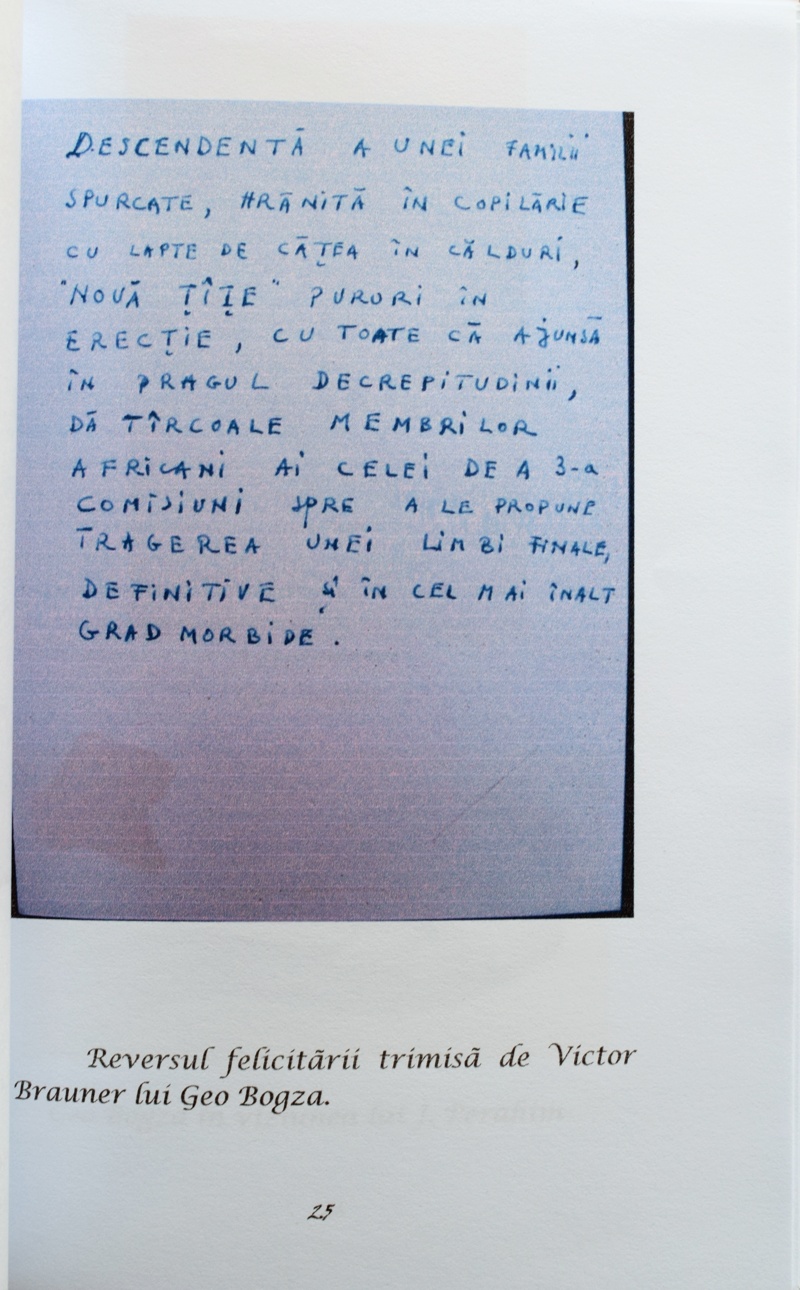 DESCENDENTĂ A UNEI FAMILII
SPURCATE, HRĂNITĂ ÎN COPILĂRIE
CU LAPTE DE CĂȚEA ÎN CĂLDURI,
"NOUĂ ȚÎȚE" PURURI ÎN
ERECȚIE, CU TOATE CĂ AJUNSĂ
ÎN PRAGUL DECREPITUDINII,
DĂ TÎRCOALE MEMBRILOR
AFRICANI AI CELEI DE A 3-a
COMISIUNI SPRE A LE PROPUNE
TRAGEREA UNEI LIMBI FINALE,
DEFINITIVE ȘI ÎN CEL MAI ÎNALT
GRAD MORBIDE.
Reversul felicitării trimisă de Victor
Brauner lui Geo Bogza.
25